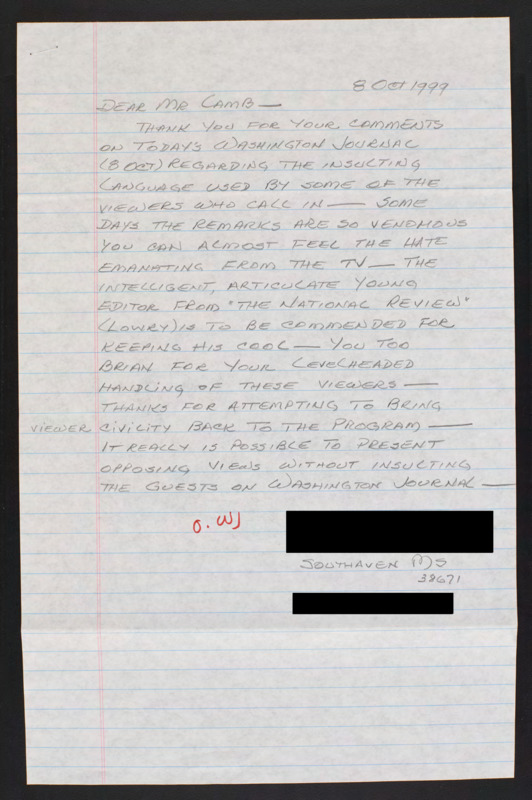 8 Oct 1999
DEAR MR LAMB —
THANK YOU FOR YOUR COMMENTS
ON TODAY'S WASHINGTON JOURNAL
(8 OCT) REGARDING THE INSULTING
LANGUAGE USED BY SOME OF THE
VIEWERS WHO CALL IN — SOME
DAYS THE REMARKS ARE SO VENOMOUS
YOU CAN ALMOST FEEL THE HATE
EMANATING FROM THE TV — THE
INTELLIGENT, ARTICULATE YOUNG
EDITOR FROM "THE NATIONAL REVIEW"
(LOWRY) IS TO BE COMMENDED FOR
KEEPING HIS COOL — YOU TOO
BRIAN FOR YOUR LEVELHEADED
HANDLING OF THESE VIEWERS —
THANKS FOR ATTEMPTING TO BRING
VIEWER CIVILITY BACK TO THE PROGRAM —
IT REALLY IS POSSIBLE TO PRESENT
OPPOSING VIEWS WITHOUT INSULTING
THE GUESTS ON WASHINGTON JOURNAL —
O. WJ
SOUTHAVEN MS
38671